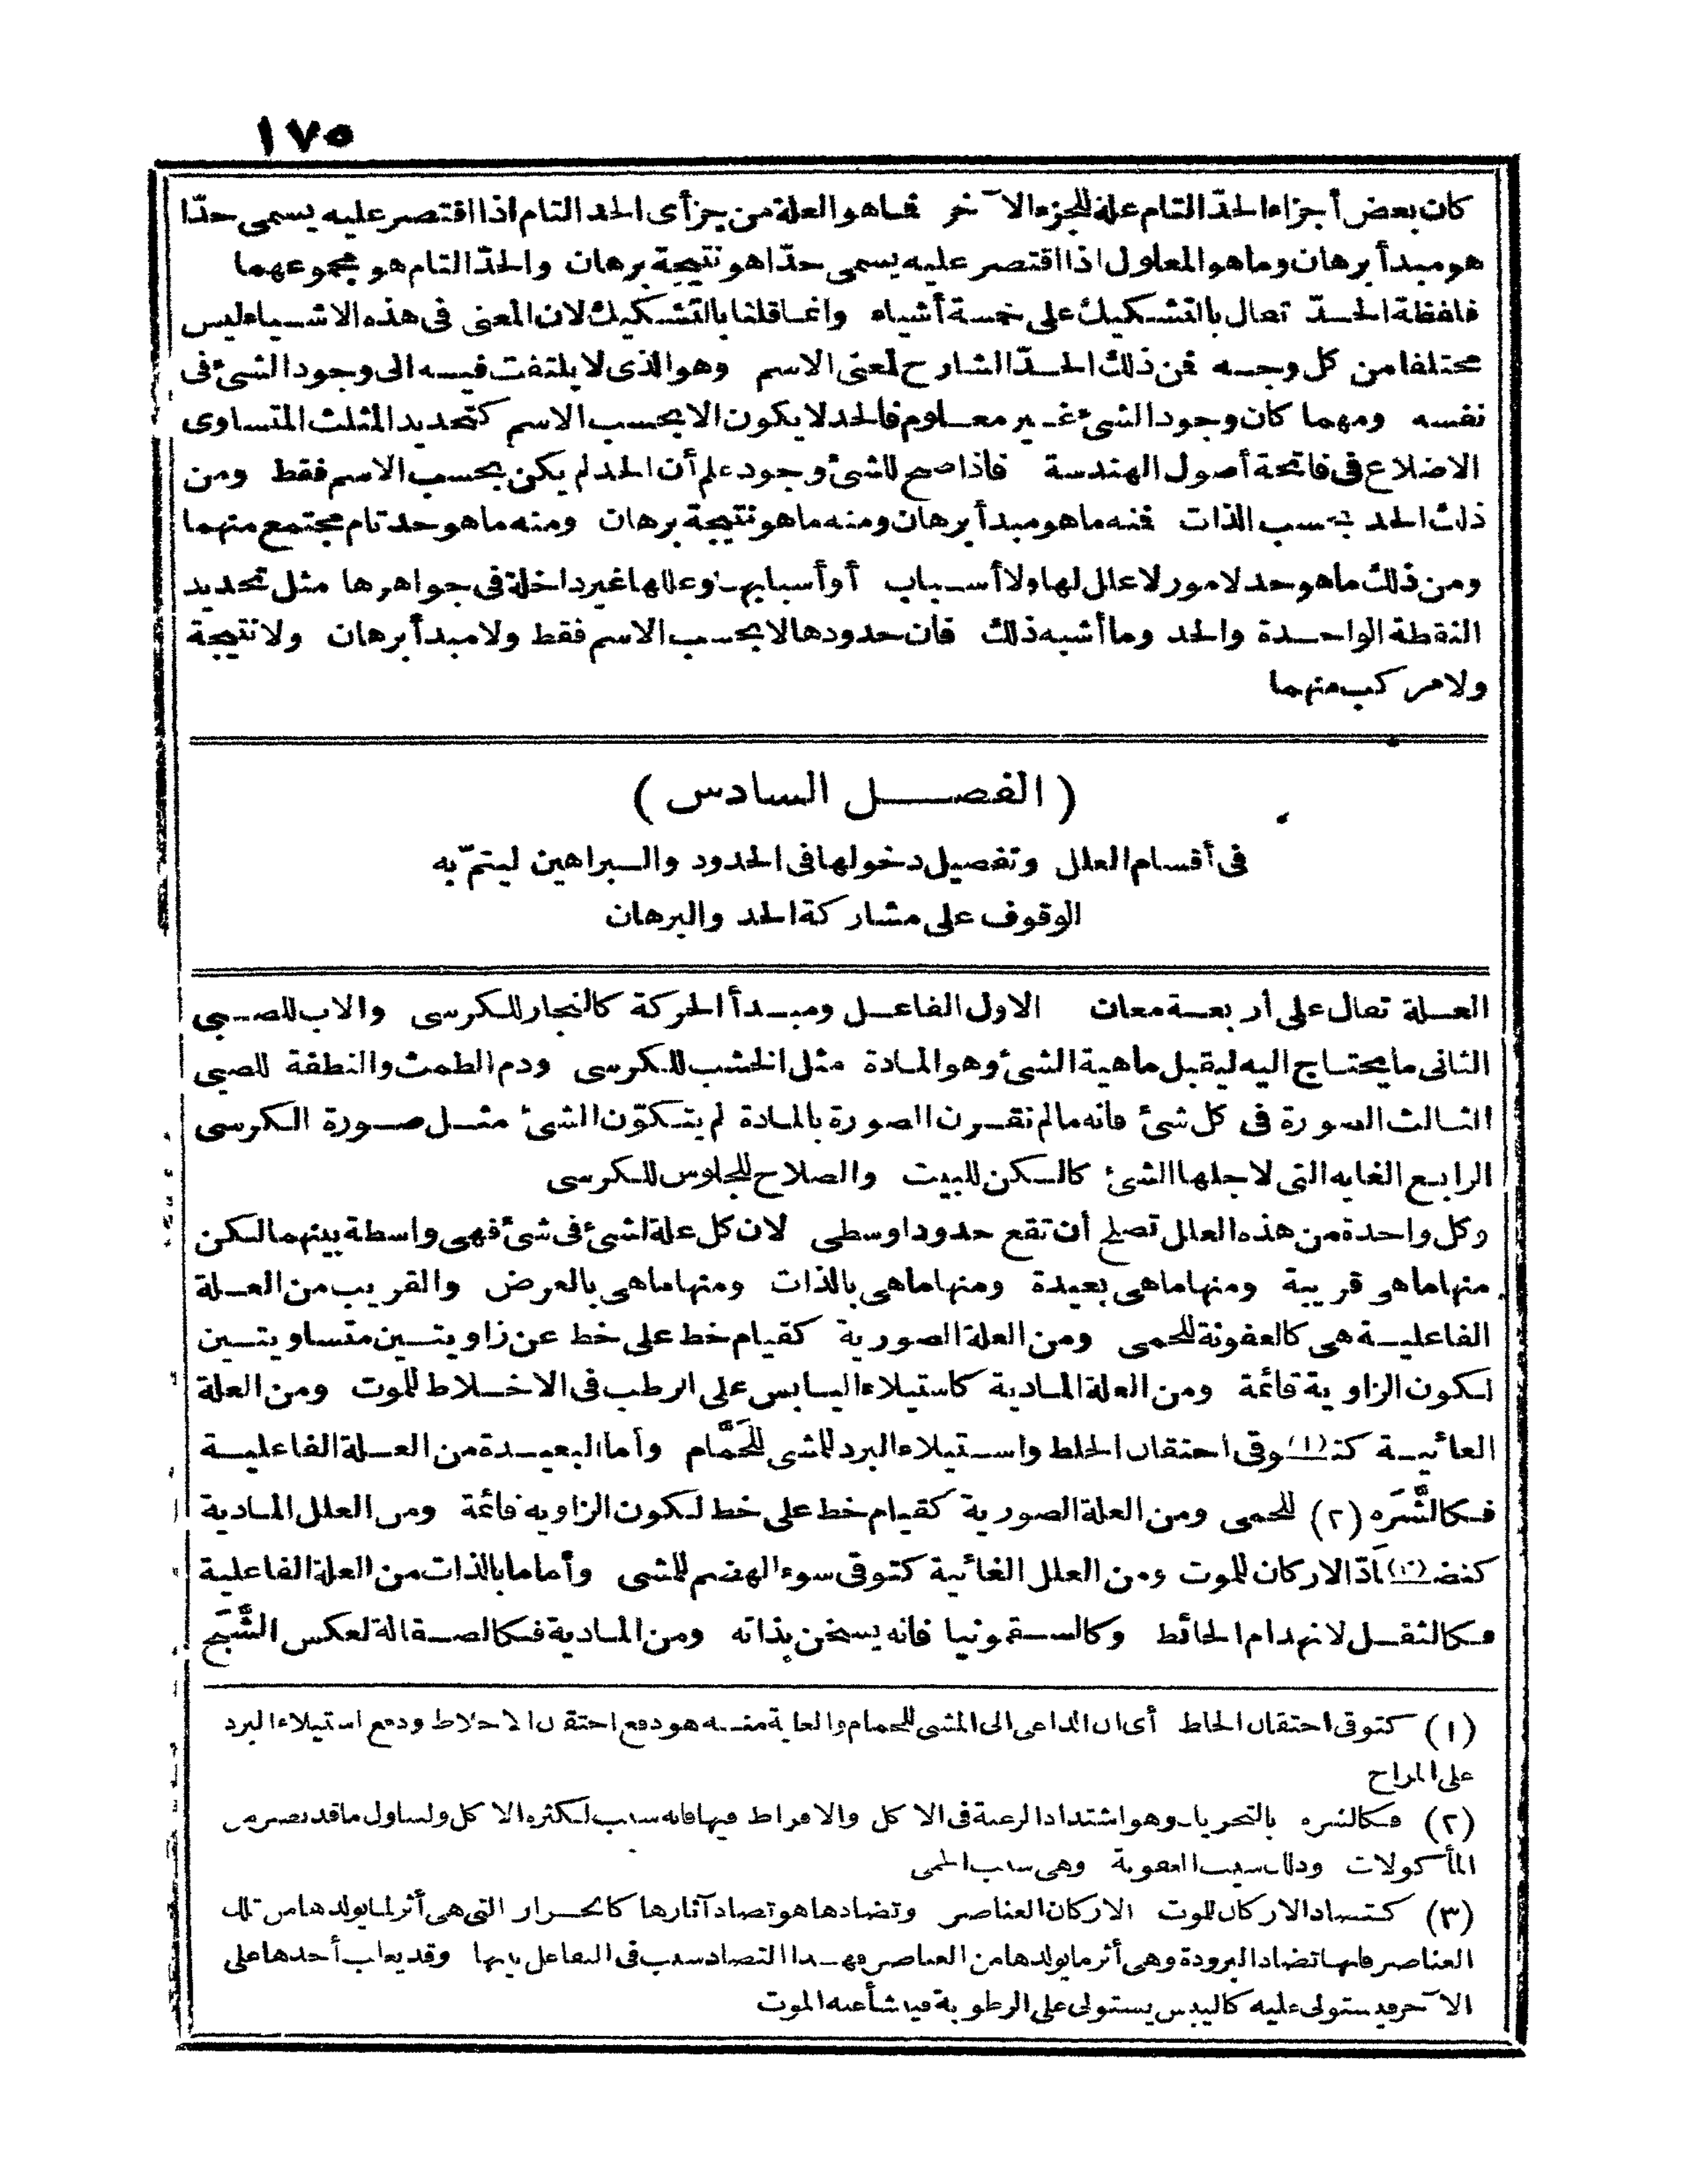 ١٧٥
كان بعض أجزاء الحدّ التام علة للجزء الآخر فما هو العلة من جزأى الحد التام اذا اقتصر عليه يسمى حدّا
هو مبدأ برهان وما هو المعلول اذا اقتصر عليه يسمى حدّا هو نتيجة برهان والحدّ التام هو مجموعهما
فلفظة الحدّ تقال بالتشكيك على خمسة أشياء وانما قلنا بالتشكيك لان المعنى فى هذه الاشياء ليس
مختلفا من كل وجه فمن ذلك الحدّ الشارح لمعنى الاسم وهو الذى لا يلتفت فيه الى وجود الشئ فى
نفسه ومهما كان وجود الشئ غير معلوم فالحد لا يكون الا بحسب الاسم كتحديد المثلث المتساوى
الاضلاع فى فاتحة أصول الهندسة فاذا صح للشئ وجود علم أن الحد لم يكن بحسب الاسم فقط ومن
ذلك الحد بحسب الذات فمنه ما هو مبدأ برهان ومنه ما هو نتيجة برهان ومنه ما هو حد تام مجتمع منهما
ومن ذلك ما هو حد لامور لا علل لها ولا أسباب أو أسبابها وعللها غير داخلة فى جواهرها مثل تحديد
النقطة الواحدة والحد وما أشبه ذلك فان حدودها لا بحسب الاسم فقط ولا مبدأ برهان ولا نتيجة
ولا مركب منهما
( الفصل السادس )
فى أقسام العلل وتفصيل دخولها فى الحدود والبراهين ليتمّ به
الوقوف على مشاركة الحد والبرهان
العلة تقال على أربعة معان الاول الفاعل ومبدأ الحركة كالنجار للكرسى والاب للصبى
الثانى ما يحتاج اليه ليقبل ماهية الشئ وهو المادة مثل الخشب للكرسى ودم الطمث والنطفة للصبى
الثالث الصورة فى كل شئ فانه ما لم تقترن الصورة بالمادة لم يتكوّن الشئ مثل صورة الكرسى
الرابع الغايه التى لاجلها الشئ كالسكن للبيت والصلاح للجلوس للكرسى
وكل واحدة من هذه العلل تصلح أن تقع حدودا وسطى لان كل علة لشئ فى شئ فهى واسطة بينهما لكن
منها ما هى قريبة ومنها ما هى بعيدة ومنها ما هى بالذات ومنها ما هى بالعرض والقريب من العلة
الفاعلية هى كالعفونة للحمى ومن العلة الصورية كقيام خط على خط عن زاويتين متساويتين
لكون الزاوية قائمة ومن العلة المادية كاستيلاء اليابس على الرطب فى الاخلاط للموت ومن العلة
الغائية كتوقى (١) احتقان الخلط واستيلاء البرد للمشى للحَمَّام وأما البعيدة من العلة الفاعلية
فكالشَّرَه (٢) للحمى ومن العلة الصورية كقيام خط على خط لكون الزاويه قائمة ومن العلل المادية
كتضادّ (٣) الاركان للموت ومن العلل الغائية كتوقى سوء الهضم للمشى وأما ما بالذات من العلة الفاعلية
فكالثقل لانهدام الحائط وكالسقمونيا فانه يسخن بذاته ومن المادية فكالصقالة لعكس الشَّبَح
(١) كتوقى احتقان الخلط أى ان الداعى الى المشى للحمام والغاية منه هو دفع احتقان الاخلاط ودفع استيلاء البرد
على المزاج
(٢) فكالشره بالتحريك وهو اشتداد الرغبة فى الاكل والافراط فيها فانه سبب لكثرة الاكل ولتناول ما قد يضر من
المأكولات وذلك سبب العفونة وهى سبب الحمى
(٣) كتضاد الاركان للموت الاركان العناصر وتضادها هو تضاد آثارها كالحرارة التى هى أثر لما يولدها من تلك
العناصر فانها تضاد البرودة وهى أثر ما يولدها من العناصر فهذا التضاد سبب فى التفاعل بينها وقد يغلب أحدها على
الآخر فيستولى عليه كاليبس يستولى على الرطوبة فينشأ عنه الموت